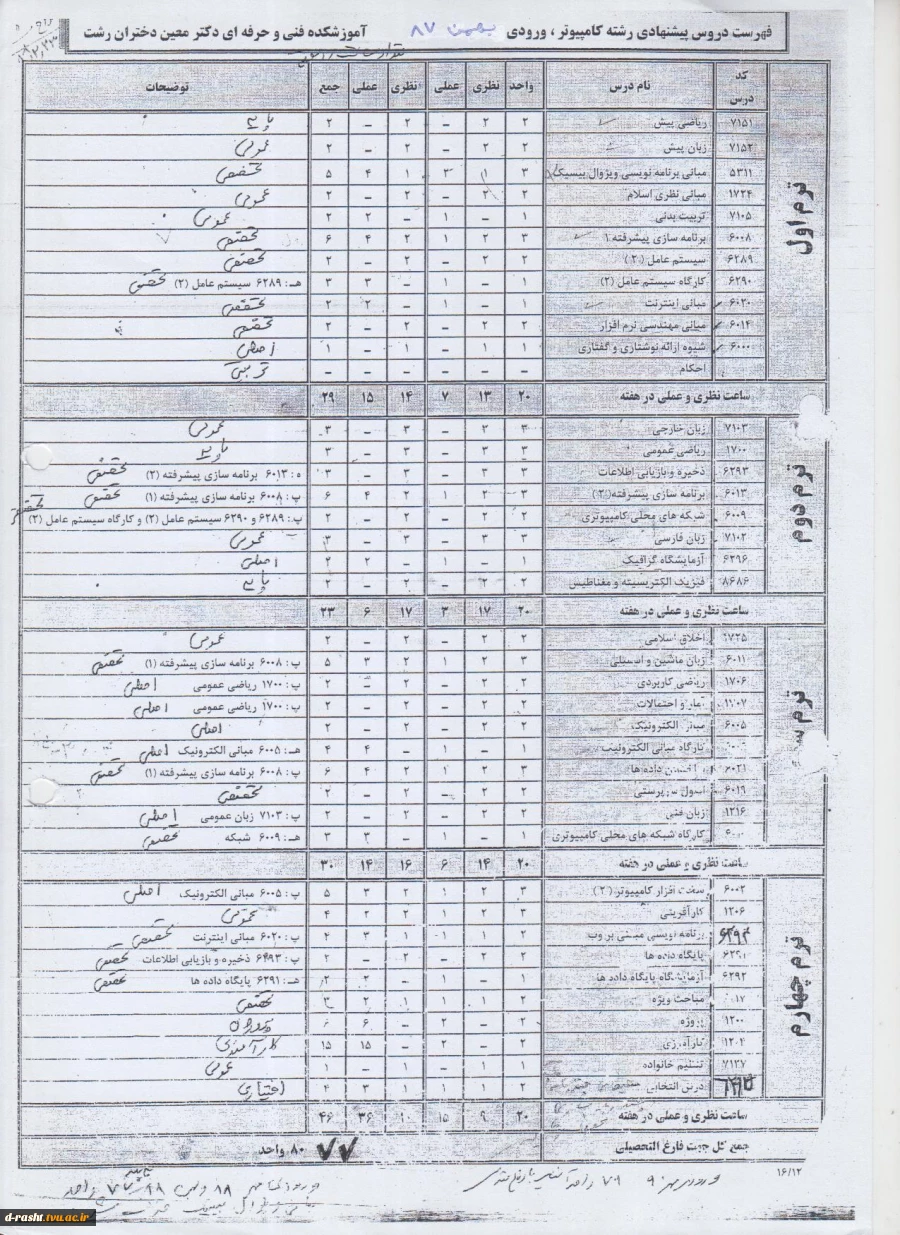 فهرست دروس پیشنهادی رشته کامپیوتر ، ورودی بهمن ۸۷ آموزشکده فنی و حرفه ای دکتر معین دختران رشت
کد درس نام درس واحد نظری عملی نظری عملی جمع توضیحات
ترم اول
۷۱۵۱ ریاضی پیش ۲ ۲ – ۲ – ۲ پایه
۷۱۵۲ زبان پیش ۲ ۲ – ۲ – ۲ عمومی
۵۳۱۱ مبانی برنامه نویسی ویژوال بیسیک ۳ ۳ ۱ ۴ ۵ تخصصی
۱۷۲۴ مبانی نظری اسلام ۲ ۲ – ۲ – ۲ عمومی
۷۱۰۵ تربیت بدنی ۱ – ۱ – ۲ ۲ عمومی
۶۰۰۸ برنامه سازی پیشرفته ۱ ۳ ۲ ۱ ۲ ۴ ۶ تخصصی
۶۲۸۹ سیستم عامل (۲) ۲ ۲ – ۲ – ۲ تخصصی
۶۲۹۰ کارگاه سیستم عامل (۲) ۱ – ۱ – ۳ ۳ هـ: ۶۲۸۹ سیستم عامل (۲) تخصصی
۶۰۲۰ مبانی اینترنت ۱ – ۱ – ۲ ۲ تخصصی
۶۰۱۴ مبانی مهندسی نرم افزار ۲ ۲ – ۲ – ۲ تخصصی
۶۰۰۰ شیوه ارائه نوشتاری و گفتاری ۱ ۱ – ۱ – ۱ اصلی
احکام – – – – – –
ساعت نظری و عملی در هفته ۲۰ ۱۳ ۷ ۱۴ ۱۵ ۲۹
ترم دوم
۷۱۰۳ زبان خارجی ۳ ۲ – ۳ – ۳ عمومی
۱۷۰۰ ریاضی عمومی ۳ ۳ – ۳ – ۳ پایه
۶۲۹۳ ذخیره و بازیابی اطلاعات ۳ ۳ – ۳ – ۳ ه: ۶۰۱۳ برنامه سازی پیشرفته (۲) تخصصی
۶۰۱۳ برنامه سازی پیشرفته (۲) ۳ ۲ ۱ ۲ ۴ ۶ پ: ۶۰۰۸ برنامه سازی پیشرفته (۱) تخصصی
۶۰۰۹ شبکه های محلی کامپیوتری ۲ ۲ – ۲ – ۲ پ: ۶۲۸۹ و ۶۲۹۰ سیستم عامل (۲) و کارگاه سیستم عامل (۲) تخصصی
۷۱۰۲ زبان فارسی ۳ ۳ – ۳ – ۳ عمومی
۶۲۹۶ آزمایشگاه گرافیک ۱ – ۱ – ۲ ۲ اصلی
۸۶۸۶ فیزیک الکتریسیته و مغناطیس ۲ ۲ – ۲ – ۲ پایه
ساعت نظری و عملی در هفته ۲۰ ۱۷ ۳ ۱۷ ۶ ۲۳
۱۷۲۵ اخلاق اسلامی ۲ ۲ – ۲ – ۲ عمومی
۶۰۱۱ زبان ماشین و اسمبلی ۳ ۲ ۱ ۲ ۳ ۵ پ: ۶۰۰۸ برنامه سازی پیشرفته (۱) تخصصی
۱۷۰۶ ریاضی کاربردی ۲ ۲ – ۲ – ۲ پ: ۱۷۰۰ ریاضی عمومی اصلی
آمار و احتمالات ۲ ۲ – ۲ – ۲ پ: ۱۷۰۰ ریاضی عمومی اصلی
۶۰۰۵ مبانی الکترونیک ۲ ۲ – ۲ – ۲ اصلی
کارگاه مبانی الکترونیک ۱ – ۱ – ۴ ۴ هـ: ۶۰۰۵ مبانی الکترونیک اصلی
۶۰۲۱ داده ها ۳ ۲ ۱ ۲ ۴ ۶ پ: ۶۰۰۸ برنامه سازی پیشرفته (۱) تخصصی
۶۰۱۹ اصول سرپرستی ۲ ۲ – ۲ – ۲ تخصصی
۱۲۱۶ زبان فنی ۲ ۲ – ۲ – ۲ پ: ۷۱۰۳ زبان عمومی اصلی
کارگاه شبکه های محلی کامپیوتری ۱ – ۱ – ۳ ۳ هـ: ۶۰۰۹ شبکه تخصصی
ساعت نظری و عملی در هفته ۲۰ ۱۴ ۶ ۱۶ ۱۴ ۳۰
ترم چهارم
۶۰۰۲ سخت افزار کامپیوتر (۲) ۳ ۲ ۱ ۲ ۳ ۵ پ: ۶۰۰۵ مبانی الکترونیک اصلی
۱۲۰۶ کارآفرینی ۳ ۲ ۱ ۲ ۲ ۴ عمومی
برنامه نویسی مبتنی بر وب ۲ ۱ ۱ ۱ ۳ ۴ پ: ۶۰۲۰ مبانی اینترنت تخصصی
۶۲۹۱ پایگاه داده ها ۲ ۲ – ۲ – ۲ پ: ۶۲۹۳ ذخیره و بازیابی اطلاعات تخصصی
۶۲۹۲ آزمایشگاه پایگاه داده ها ۱ – ۱ – ۲ ۲ هـ: ۶۲۹۱ پایگاه داده ها تخصصی
مباحث ویژه ۲ ۱ ۱ ۱ ۲ ۳ تخصصی
۱۲۰۰ پروژه ۲ – ۲ – ۶ ۶ پروژه
۱۲۰۴ کارآموزی ۲ – ۲ – ۱۵ ۱۵ کارآموزی
۷۱۲۷ تنظیم خانواده ۱ ۱ – ۱ – ۱ عمومی
درس انتخابی ۲ ۱ ۱ ۱ ۳ ۴ اختیاری
ساعت نظری و عملی در هفته ۲۰ ۹ ۱۵ ۱۰ ۳۶ ۴۶
جمع کل جهت فارغ التحصیلی ۷۷ ۸۰ واحد
۱۶/۱۲
d-rasht.tvu.ac.ir